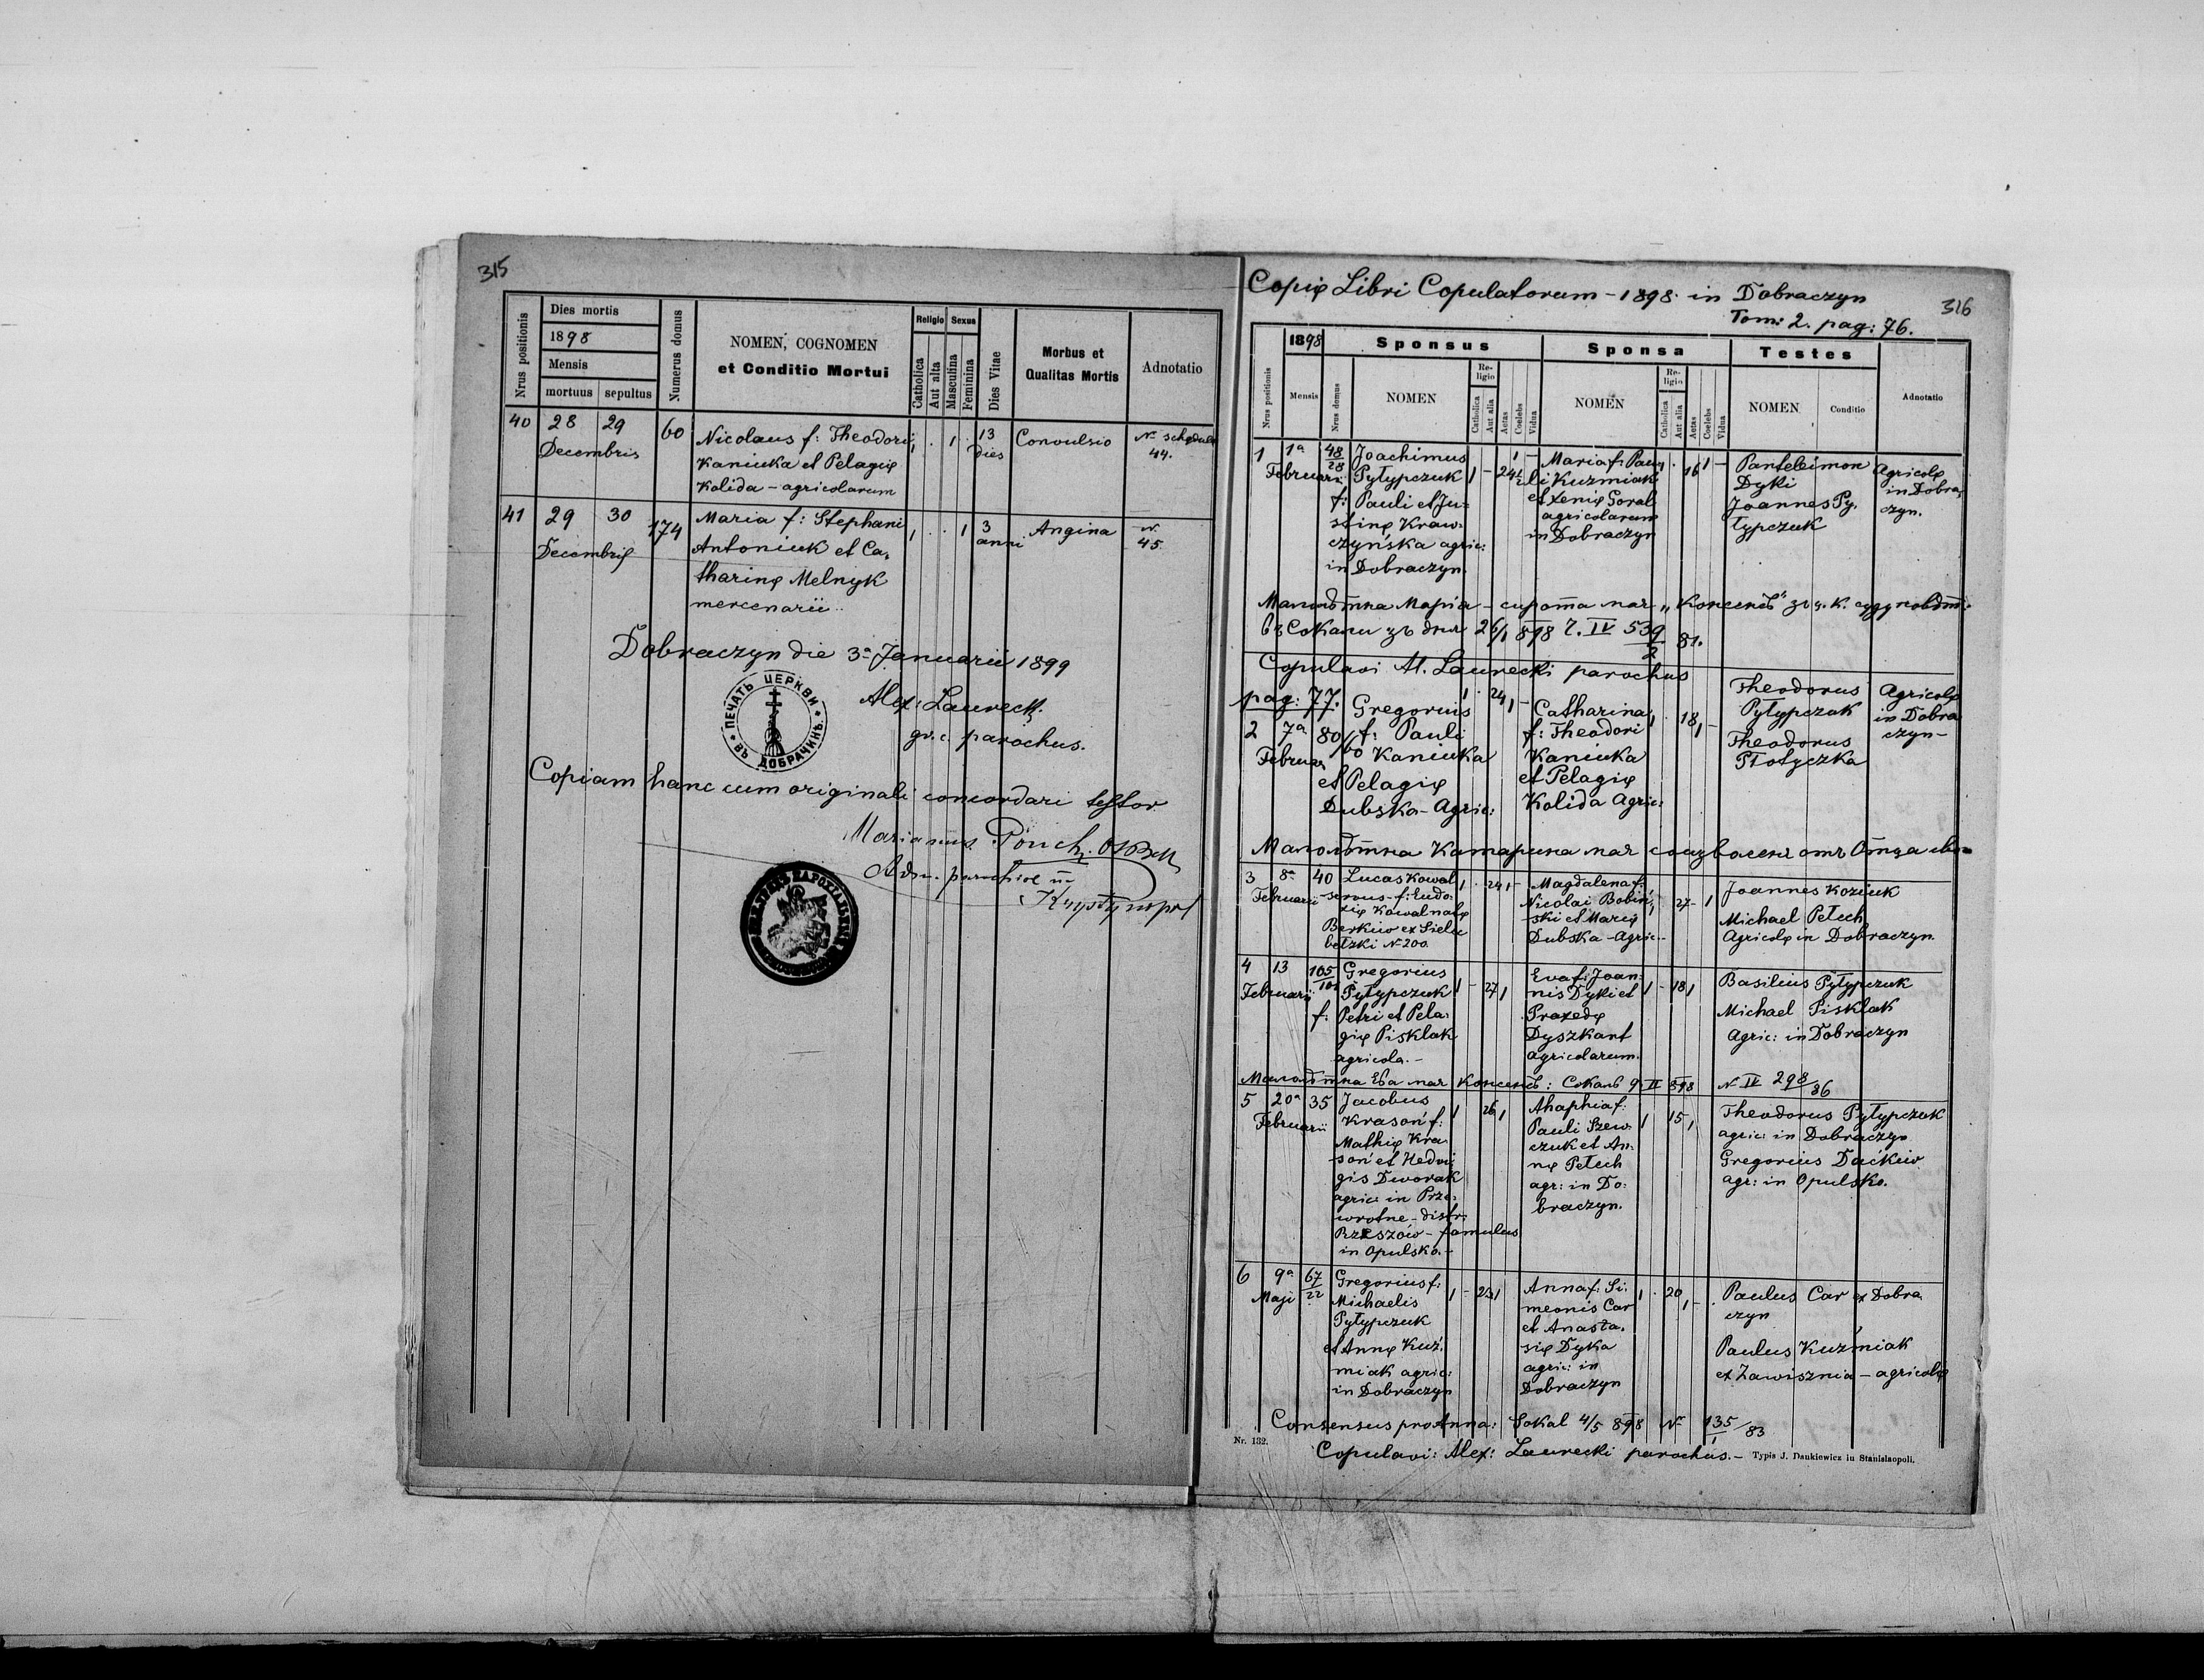 315
Nrus positionis
Dies mortis
1898
Mensis
mortuus
sepultus
Numerus domus
NOMEN, COGNOMEN
et Conditio Mortui
Religio
Catholica
Aut alta
Sexus
Masculina
Feminina
Dies Vitae
Morbus et
Qualitas Mortis
Adnotatio
40
28
29
Decembris
60
Nicolaus f: Theodori
Kaniuka et Pelagię
Kolida – agricolarum
1
13
dies
Convulsio
44.
41
29
30
Decembris
174
Maria f: Stephani
Antoniuk et Ca-
tharinę Melnyk
mercenarii
1
1
3
anni
Angina
N
45
Dobraczyn die 3a Januarii 1899
ПЕЧАТЬ ЦЕРКВИ ВЪ ДОБРАЧИНѢ
Alex: Laurecki
gr. c. parochus.
Copiam hanc cum originali concordari testor
Marianus
Adm. parochiae in
Krystynopol
Copię Libri Copulatorum – 1898. in Dobraczyn
Tom: 2. pag: 76.
316
Nrus positionis
1898
Mensis
Nrus domus
Sponsus
NOMEN
Re-
ligio
Catholica
Aut alia
Aetas
Coelebs
Vidua
Sponsa
NOMEN
Re-
ligio
Catholica
Aut alia
Aetas
Coelebs
Vidua
Testes
NOMEN
Conditio
Adnotatio
1
1a
Februarii
48
28
Joachimus
Pyłypczuk
f: Pauli et Ju-
stinę Kraw-
czyńska agric:
in Dobraczyn.
1 – 24
Maria f: Pau-
li Kuzmiak
et Xenię Goral
agricolarum
in Dobraczyn
16 1 –
Panteleimon
Dyki
Joannes Py-
łypczuk
Agricolę
in Dobra-
czyn.
Малолѣтна Марія – сирота мае „Консенсъ" зъ ц. к. суду повѣт:
въ Сокали зъ дня 26/1 898 Ч. IV 539
2
81.
Copulavi Al. Laurecki parochus
pag: 77.
2
7a
Februar
80
60
Gregorius
f: Pauli
Kaniuka
et Pelagię
Dubska – Agric:
1 24 1 –
Catharina
f: Theodori
Kaniuka
et Pelagię
Kolida Agric:
1 18 1 –
Theodorus
Pyłypczak
Theodorus
Płotyczka
Agricolę
in Dobra
czyn –
Малолѣтна Катарина мае соизволенє отъ Отца
3
8a
Februarii
40
Lucas Kowal
servus – f: Eudo-
xię Kowal natę
Berkiw ex Sielec
bełzki N 200
1 24 1 –
Magdalena f:
Nicolai Bobiń-
ski et Marię
Dubska – Agric –
27 – 1
Joannes Koziuk
Michael Petech
Agricolę in Dobraczyn.
4
13
Februarii
105
Gregorius
Pyłypczuk
f: Petri et Pela-
gię Pisklak
agricola. –
1 – 27 1
Eva f: Joan-
nis Dyki et
Praxedę
Dyszkant
agricolarum.
1 – 18 1
Basilius Pyłypczuk
Michael Pisklak
Agric: in Dobraczyn
Малолѣтна Ева мае Консенсъ: Сокаль 9 II 898 N IV 298/86
5
20a
Februarii
35
Jacobus
Krasoń f:
Mathię Kra-
soń et Hedwi-
gis Dworak
agric: in Prze-
wrotne – distr:
Rzeszów – famulus
in Opulsko. –
1 26 1
Ahaphia f:
Pauli Szew-
czuk et An-
nę Petech
agr: in Do-
braczyn.
1 15 1
Theodorus Pyłypczuk
agric: in Dobraczyn
Gregorius Daćkiw
agr: in Opulsko.
6
9a
Maji
67
22
Gregorius f:
Michaelis
Pyłypczuk
et Annę Kuź-
miak agric:
in Dobraczyn
1 – 23 1
Anna f: Si-
meonis Car
et Anasta-
się Dyka
agric: in
Dobraczyn
1 20 1 –
Paulus Car ex Dobra
czyn
Paulus Kuźmiak
ex Zawisznia – agricolę
Consensus pro Anna: Sokal 4/5 898 N 135/83
1
Copulavi: Alex: Laurecki parochus. –
Nr. 132.
Typis J. Dankiewicz in Stanislaopoli.